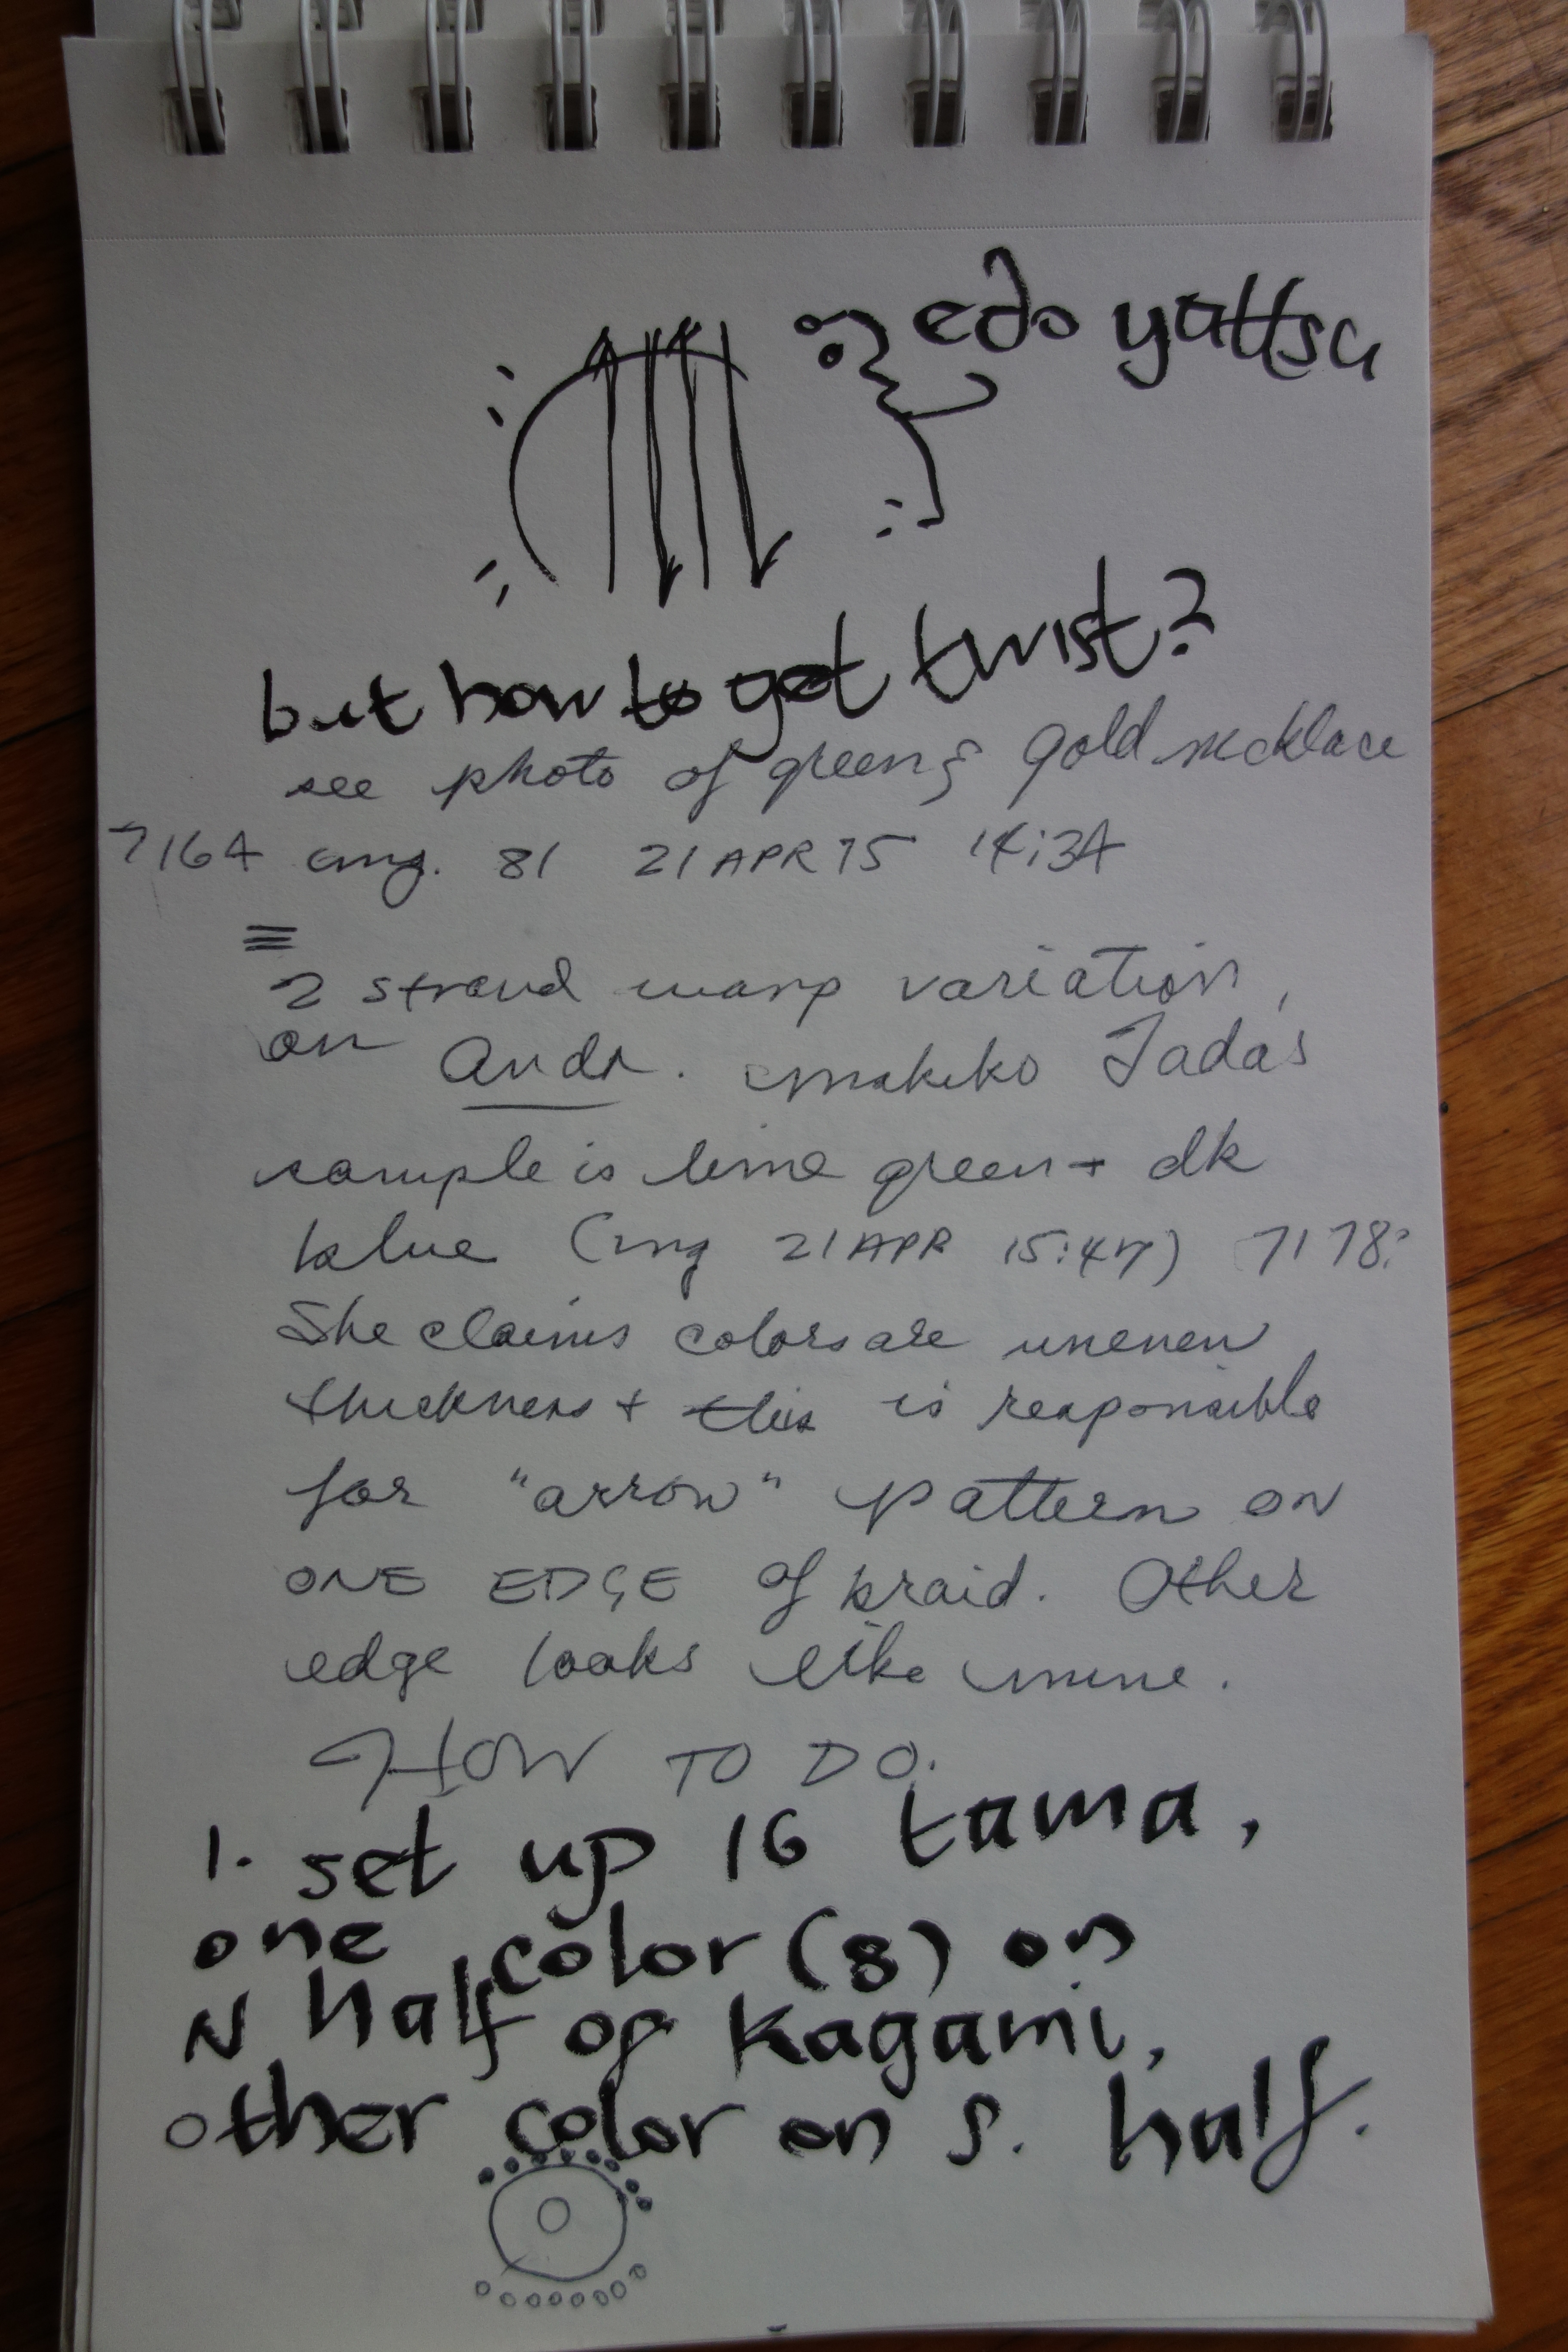 edo yattsu
but how to get twist?
see photo of green & gold necklace
7164 img. 81 21 APR 15 14:34
2 strand warp variation,
on Anda. Makiko Tada's
sample is lime green + dk
blue (img 21 APR 15:47) 7178?
She claims colors are uneven
thickness + this is responsible
for "arrow" pattern on
ONE EDGE of braid. Other
edge looks like mine.
HOW TO DO.
1. set up 16 tama,
one color (8) on
N half of Kagami,
other color on S. half.